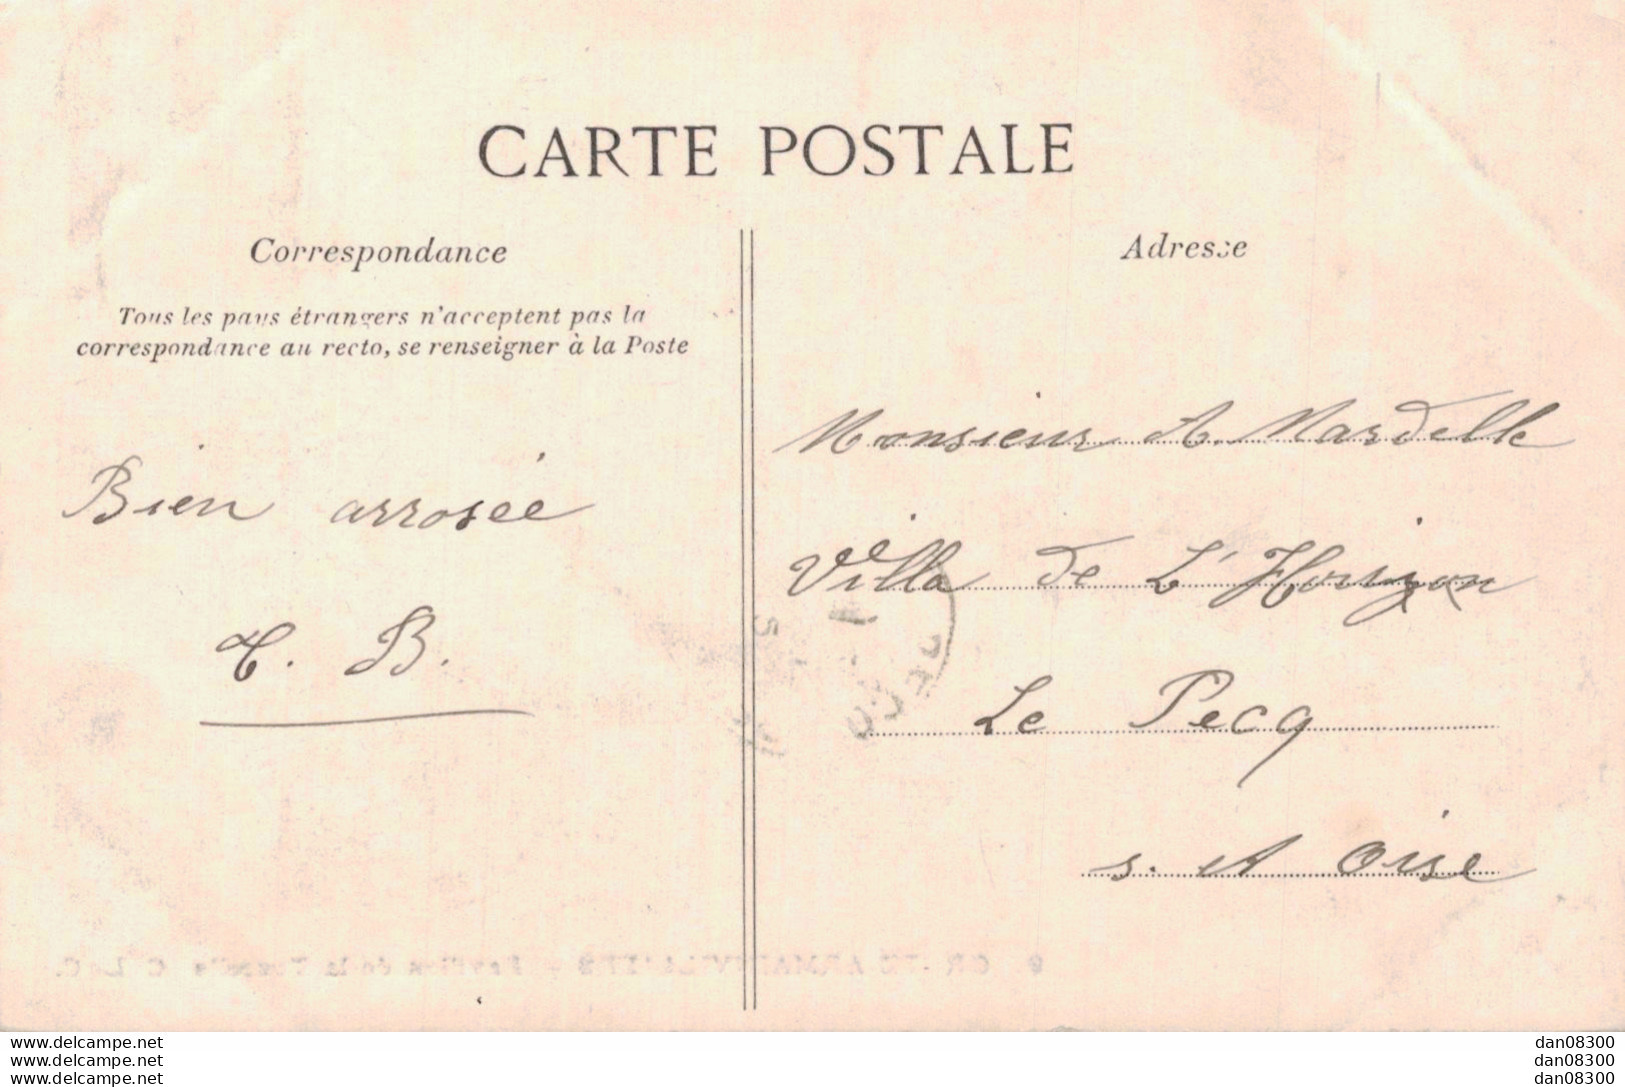 CARTE POSTALE
Correspondance
Tous les pays étrangers n'acceptent pas la
correspondance au recto, se renseigner à la Poste
Bien arrosée
B.
Adresse
Monsieur A. Mardelle
Villa de L'Horizon
Le Pecq
s. et Oise
www.delcampe.net
www.delcampe.net
www.delcampe.net
dan08300
dan08300
dan08300